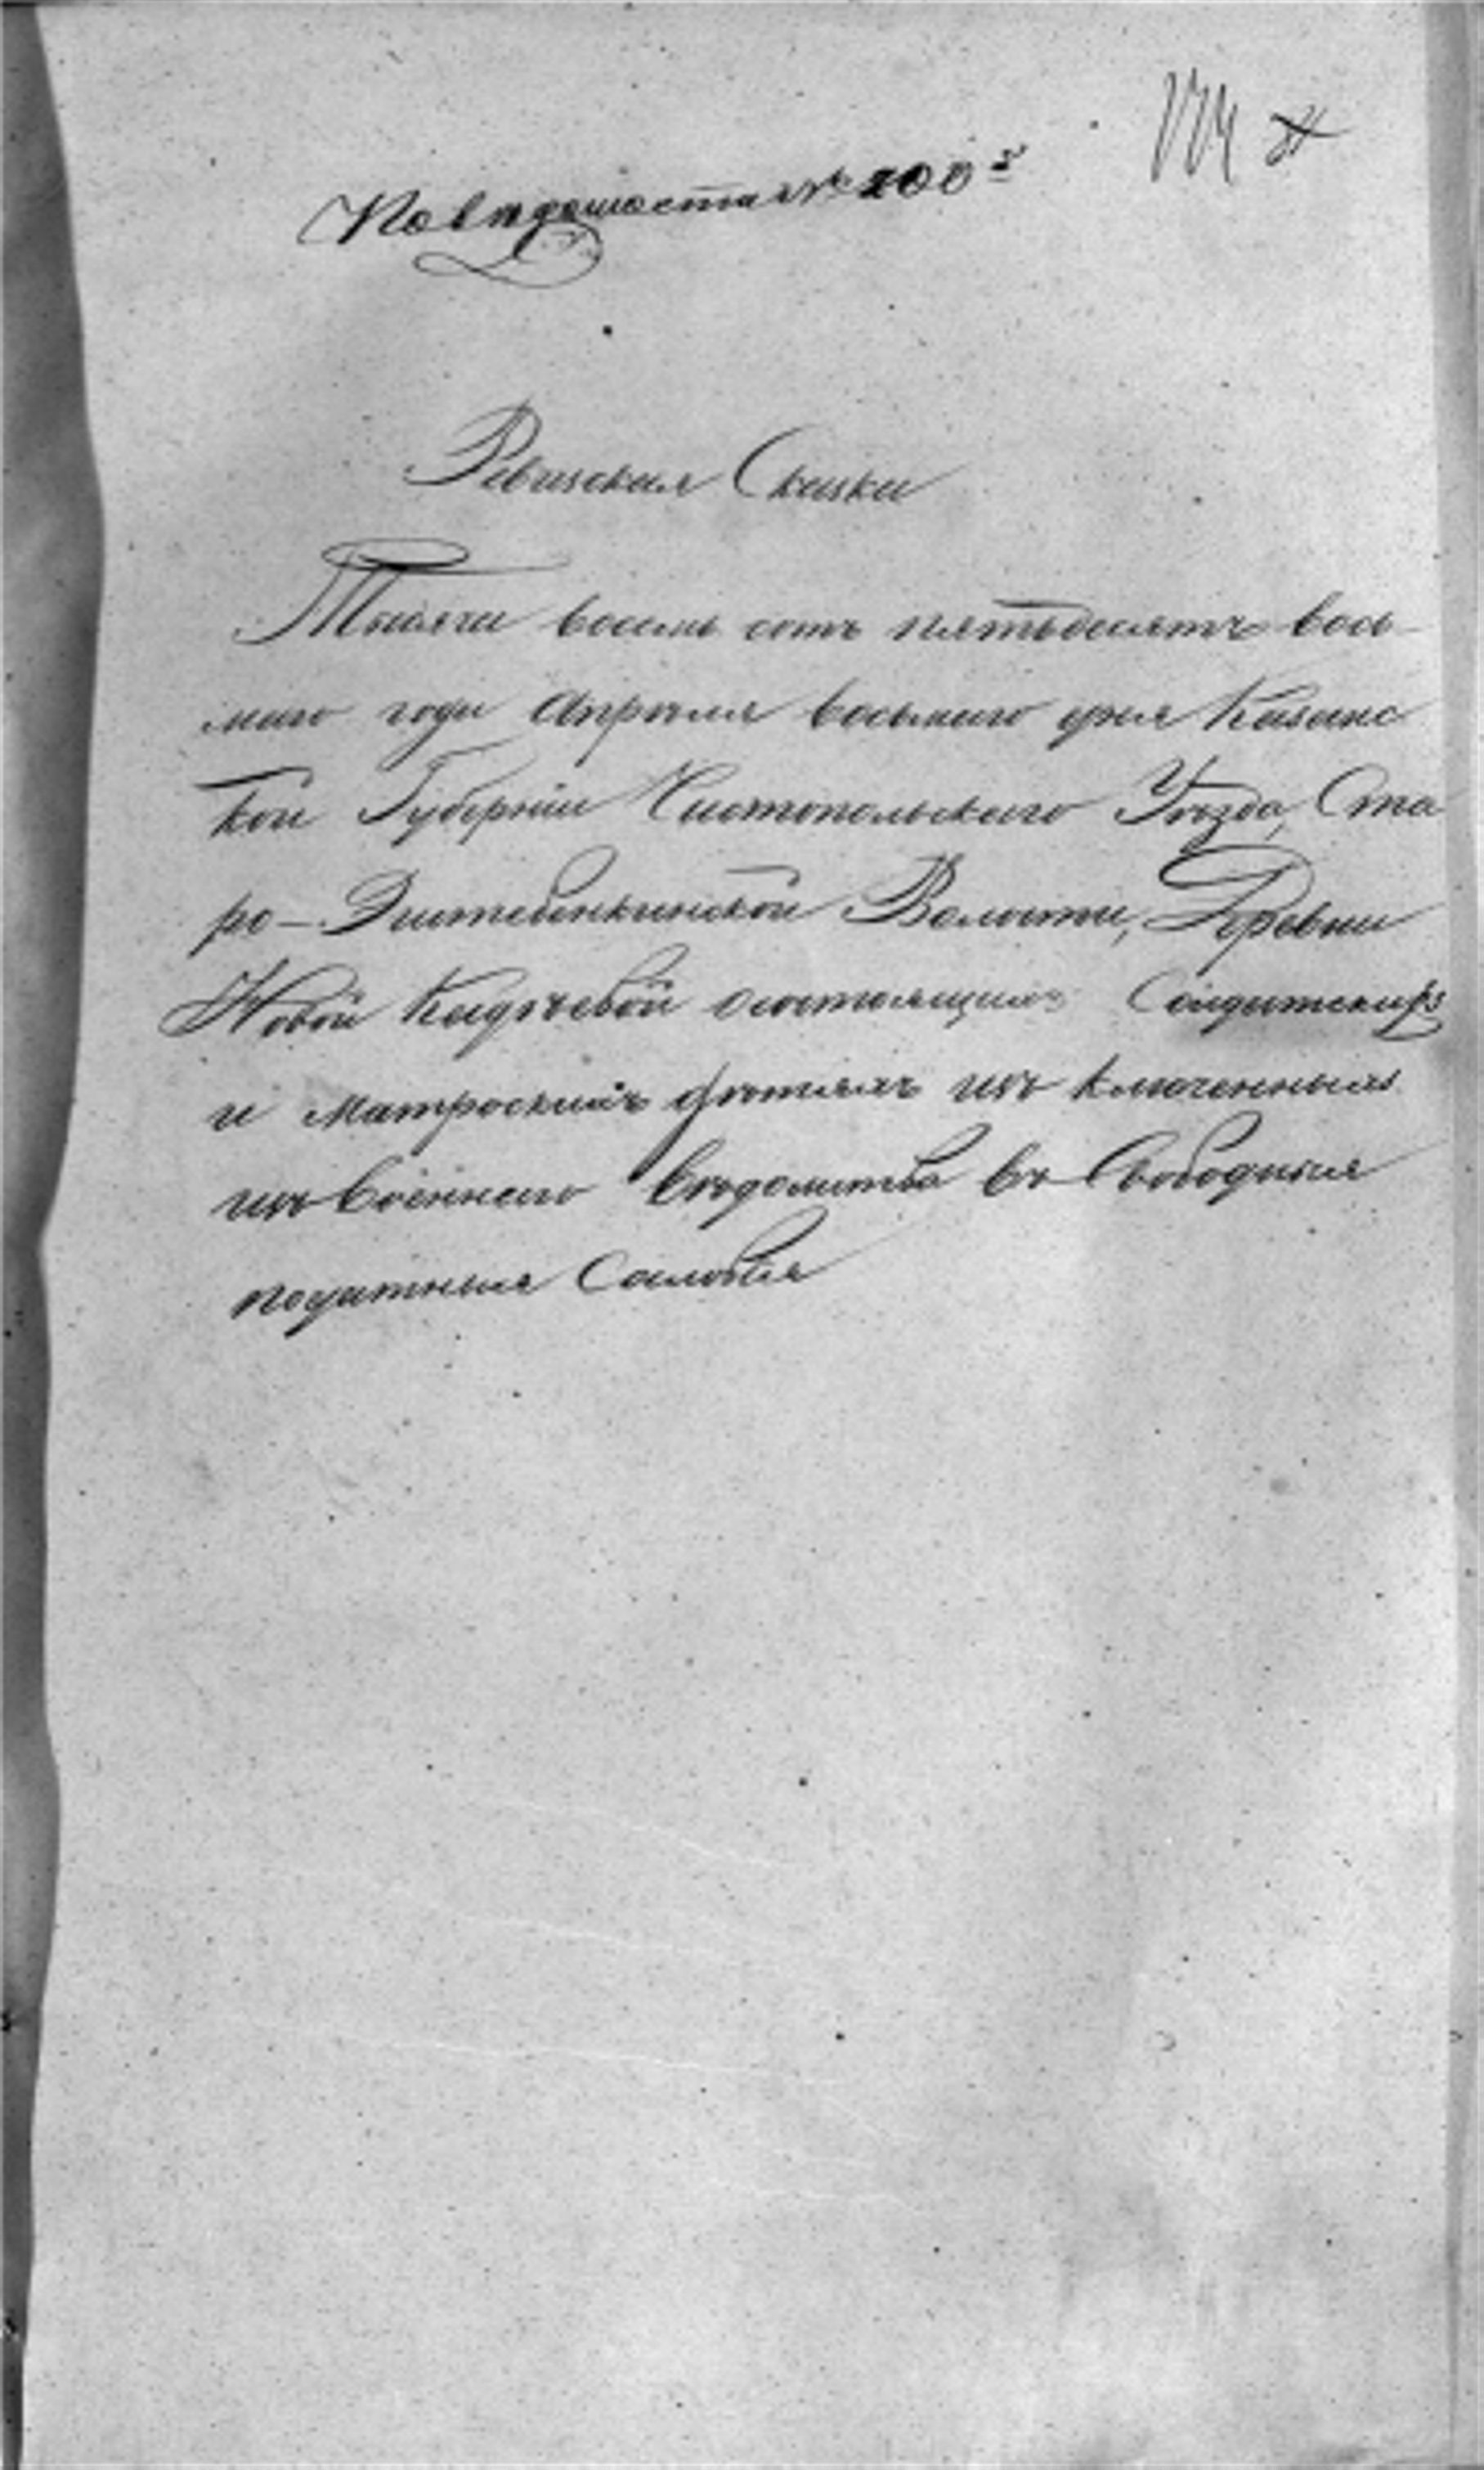 По ведомости № 200й
Ревизская Сказка
Тысяча восемь сотъ пятьдесятъ вось-
маго года Апрѣля восьмаго дня Казанс
кой Губерніи Чистопольскаго Уѣзда, Ста
ро- Волости, Деревни
Новой состоящимъ Солдатскихъ
и Матроскихъ дѣтяхъ изъ ключенныхъ
изъ военнаго вѣдомства въ Свободныя
податныя Сословія